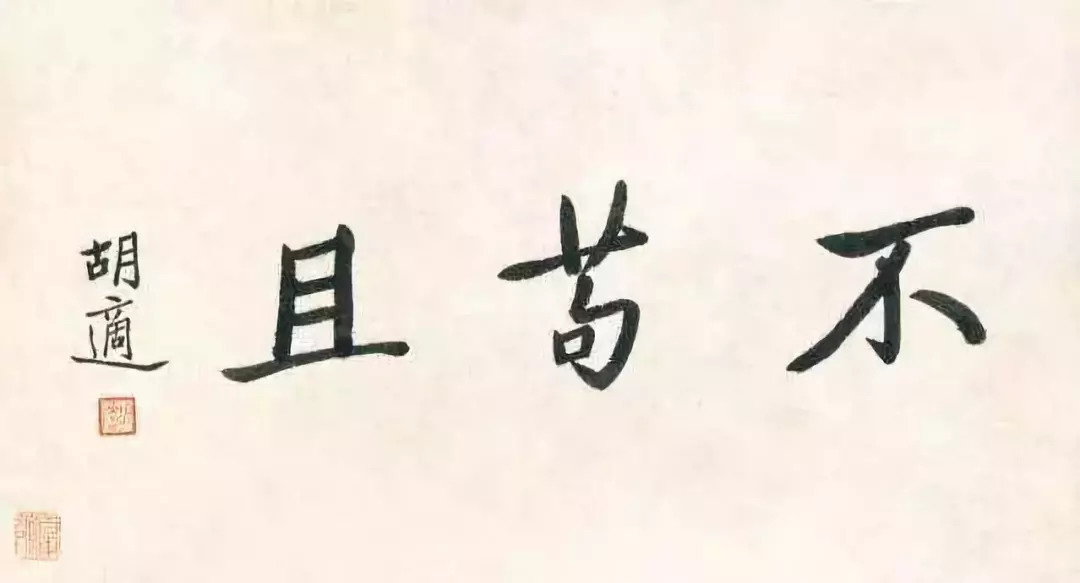 不苟且
胡適